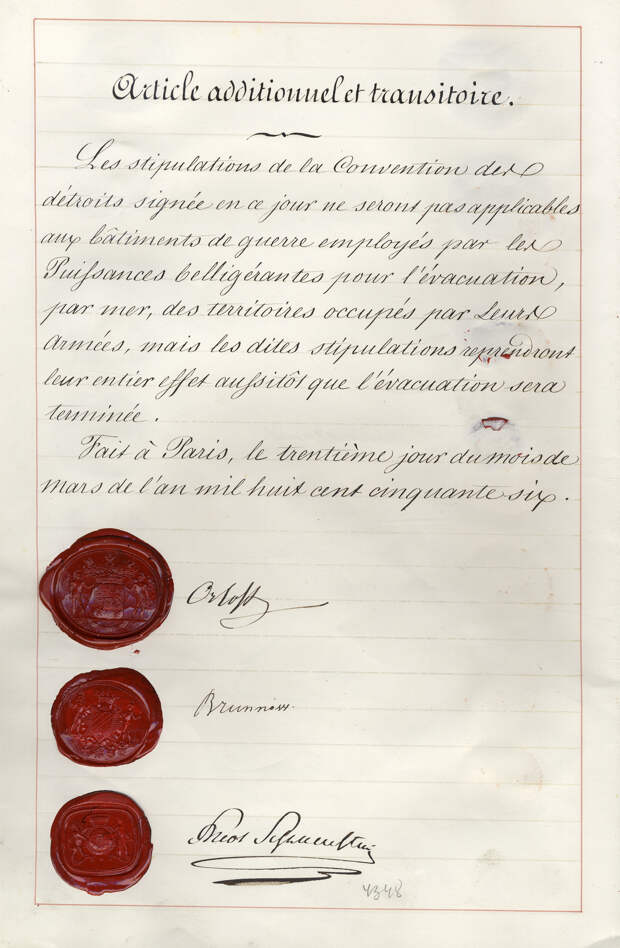 Article additionnel et transitoire.
Les stipulations de la Convention des
détroits signée en ce jour ne seront pas applicables
aux bâtiments de guerre employés par les
Puissances belligérantes pour l'évacuation,
par mer, des territoires occupés par Leurs
Armées, mais les dites stipulations reprendront
leur entier effet aussitôt que l'évacuation sera
terminée.
Fait à Paris, le trentième jour du mois de
mars de l'an mil huit cent cinquante six.
Orloff
Brunnow.
4348